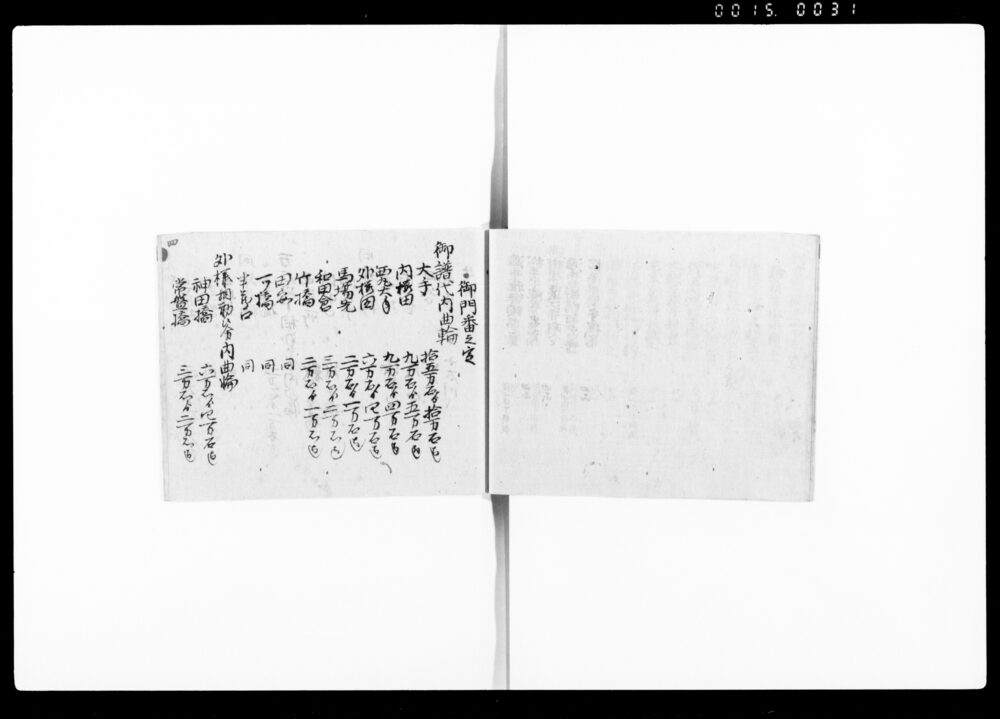 0015. 0031
御門番之定
御譜代内曲輪
大手 拾五万石ゟ拾万石迄
内桜田 九万石ゟ五万石迄
西丸大手 九万石ゟ四万石迄
外桜田 六万石ゟ四万石迄
馬場先 二万石ゟ一万石迄
和田倉 三万石ゟ二万石迄
竹橋 二万石ゟ一万石迄
田安 同
一ツ橋 同
半蔵口 同
外様相勤候分内曲輪
神田橋 六万石ゟ四万石迄
常盤橋 三万石ゟ二万石迄
四